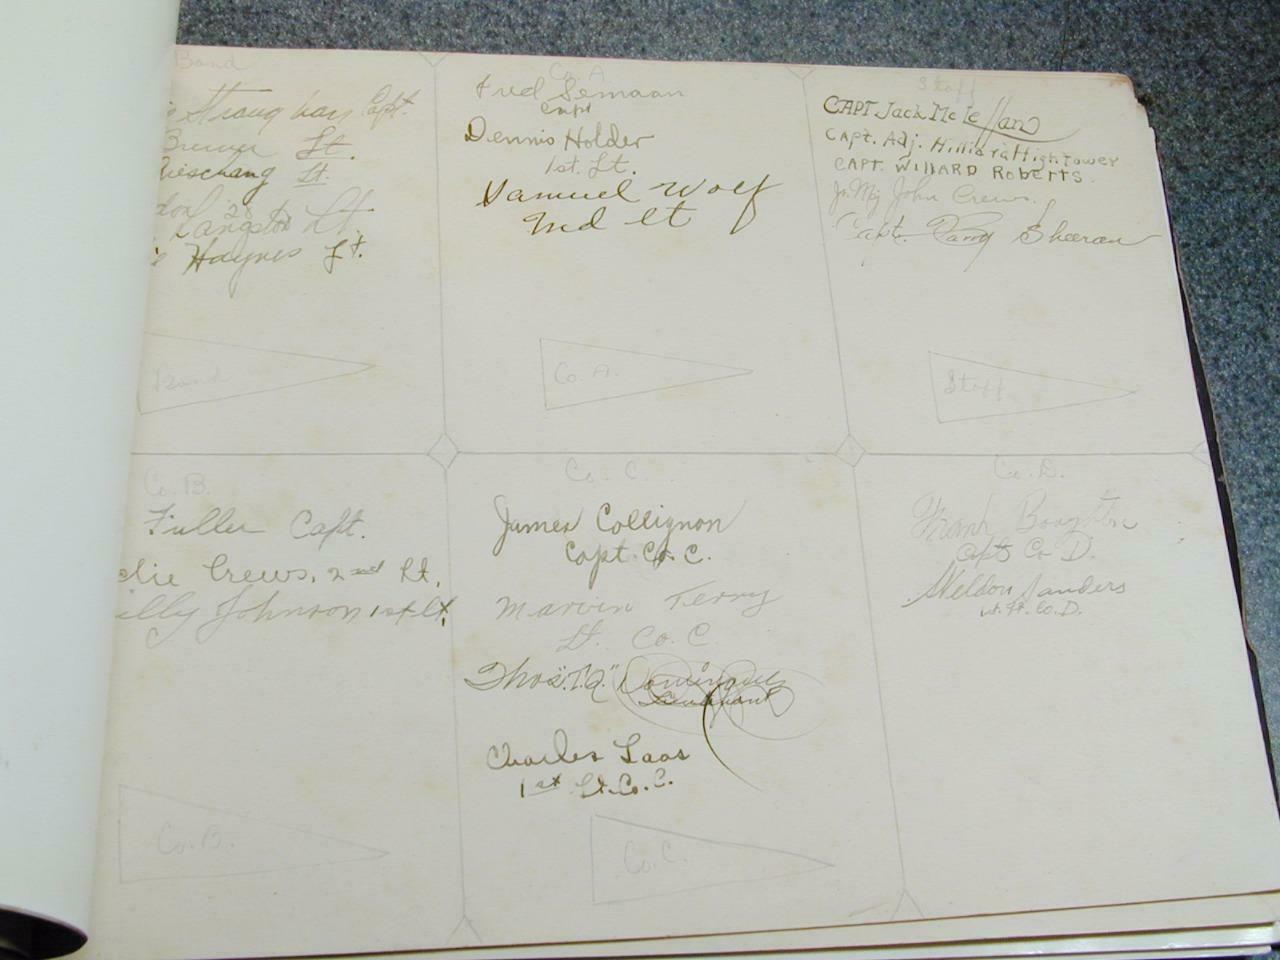 Band
Strang Capt.
Brewer Lt.
Lt.
Langston Lt.
Haynes Lt.
Band
Co. A
Fred Semaan
Capt
Dennis Holder
1st. Lt.
Samuel Wolf
2nd Lt
Co. A.
Staff
CAPT Jack McLelland
Capt. Adj. Hilliard Hightower
CAPT. WILLARD Roberts.
Jr. Mj John Crews.
Capt. Sheeran
Staff
Co. B.
Fuller Capt.
Crews, 2nd Lt.
illy Johnson 1st Lt.
Co. B.
Co. C.
James Collignon
Capt. Co. C.
Marvin Terry
Lt. Co. C
Thos. "T.Q." Dominguez
Lieutenant
Charles Laas
1st Lt. Co. C.
Co. C.
Co. D.
Frank Boughton
Capt Co D.
Weldon Sanders
1st. Lt. Co. D.